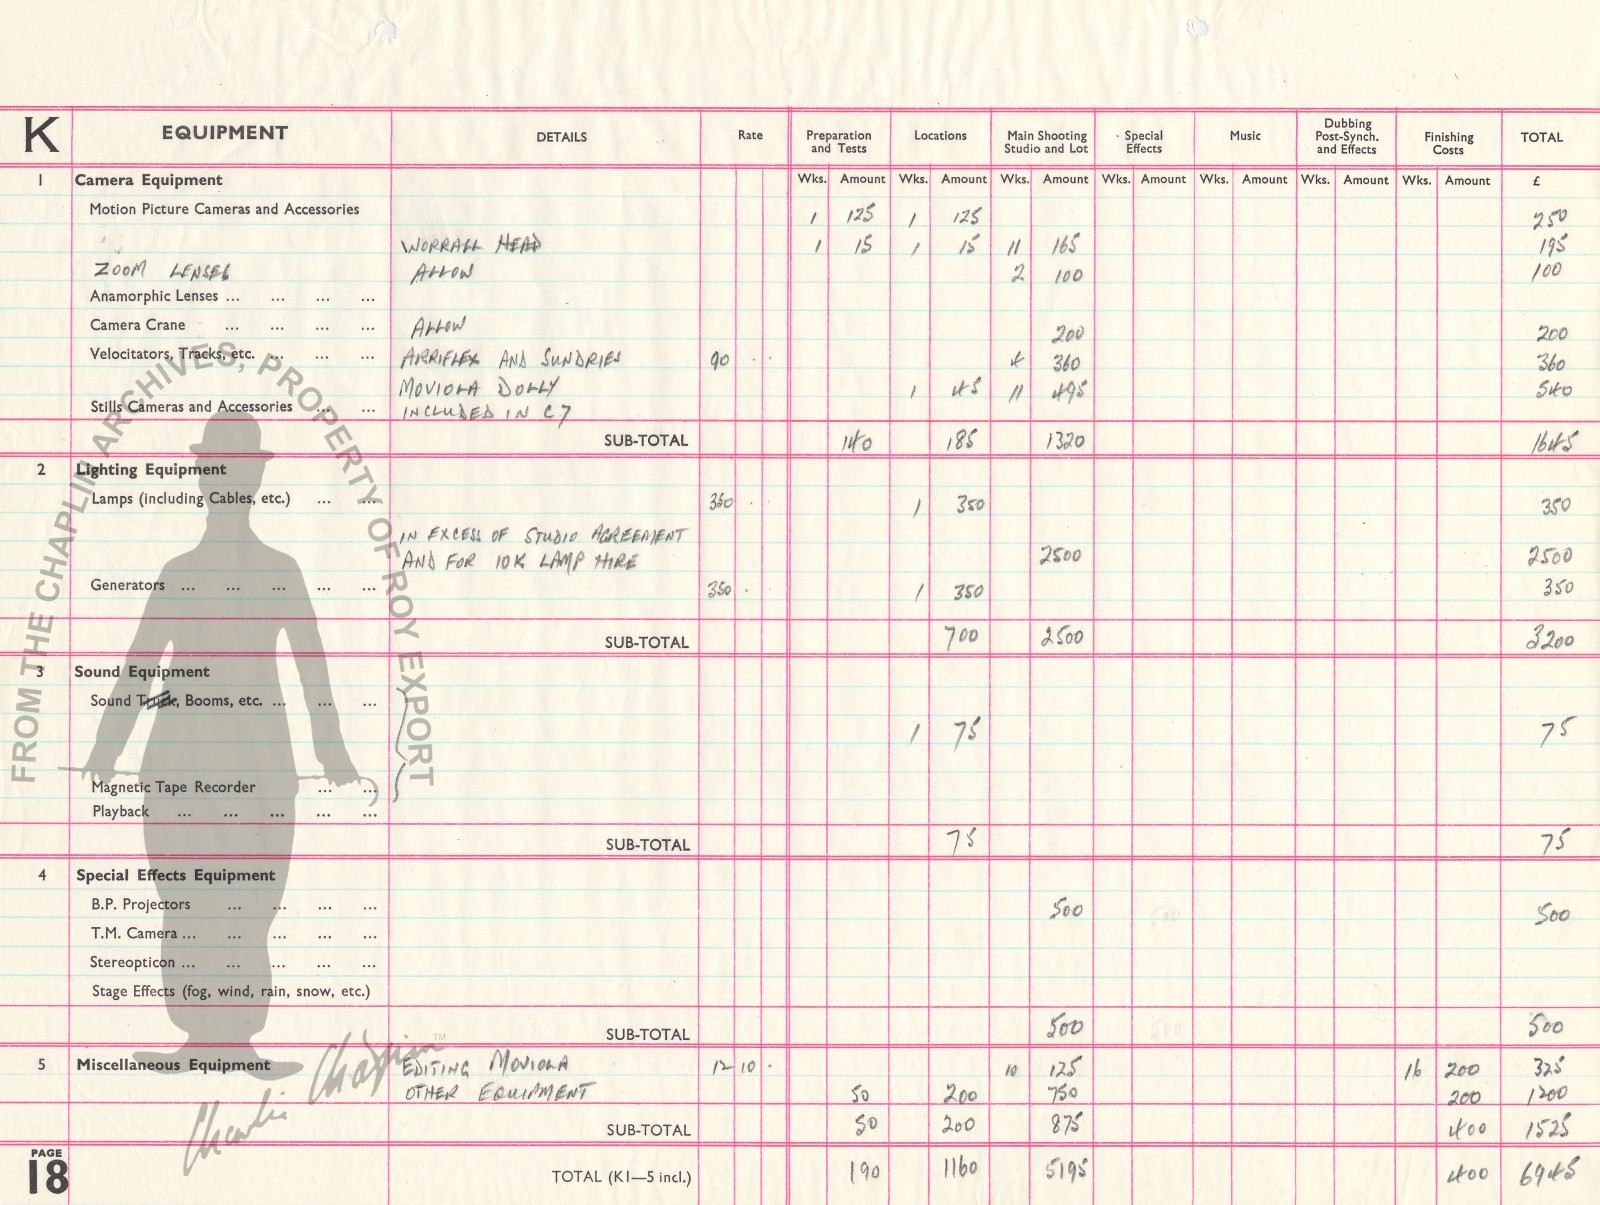 K EQUIPMENT DETAILS Rate Preparation and Tests Locations Main Shooting Studio and Lot Special Effects Music Dubbing Post-Synch. and Effects Finishing Costs TOTAL
1 Camera Equipment Wks. Amount Wks. Amount Wks. Amount Wks. Amount Wks. Amount Wks. Amount Wks. Amount £
Motion Picture Cameras and Accessories 1 125 1 125 250
WORRALL HEAD 1 15 1 15 11 165 195
ZOOM LENSES ALLOW 2 100 100
Anamorphic Lenses ... ... ... ...
Camera Crane ... ... ... ... ALLOW 200 200
Velocitators, Tracks, etc. ... ... ... ARRIFLEX AND SUNDRIES 90 4 360 360
MOVIOLA DOLLY 1 45 11 495 540
Stills Cameras and Accessories ... ... INCLUDED IN C7
SUB-TOTAL 140 185 1320 1645
2 Lighting Equipment
Lamps (including Cables, etc.) ... ... 350 1 350 350
IN EXCESS OF STUDIO AGREEMENT
AND FOR 10K LAMP HIRE 2500 2500
Generators ... ... ... ... ... 350 1 350 350
SUB-TOTAL 700 2500 3200
3 Sound Equipment
Sound Truck, Booms, etc. ... ... ...
1 75 75
Magnetic Tape Recorder ... ...
Playback ... ... ... ... ...
SUB-TOTAL 75 75
4 Special Effects Equipment
B.P. Projectors ... ... ... ... 500 500 500
T.M. Camera ... ... ... ... ...
Stereopticon ... ... ... ... ...
Stage Effects (fog, wind, rain, snow, etc.)
SUB-TOTAL 500 500 500
5 Miscellaneous Equipment EDITING MOVIOLA 12 10 10 125 16 200 325
OTHER EQUIPMENT 50 200 750 200 1200
SUB-TOTAL 50 200 875 400 1525
PAGE
18 TOTAL (K1—5 incl.) 190 1160 5195 400 6945
FROM THE CHAPLIN ARCHIVES, PROPERTY OF ROY EXPORT
Charlie Chaplin ™